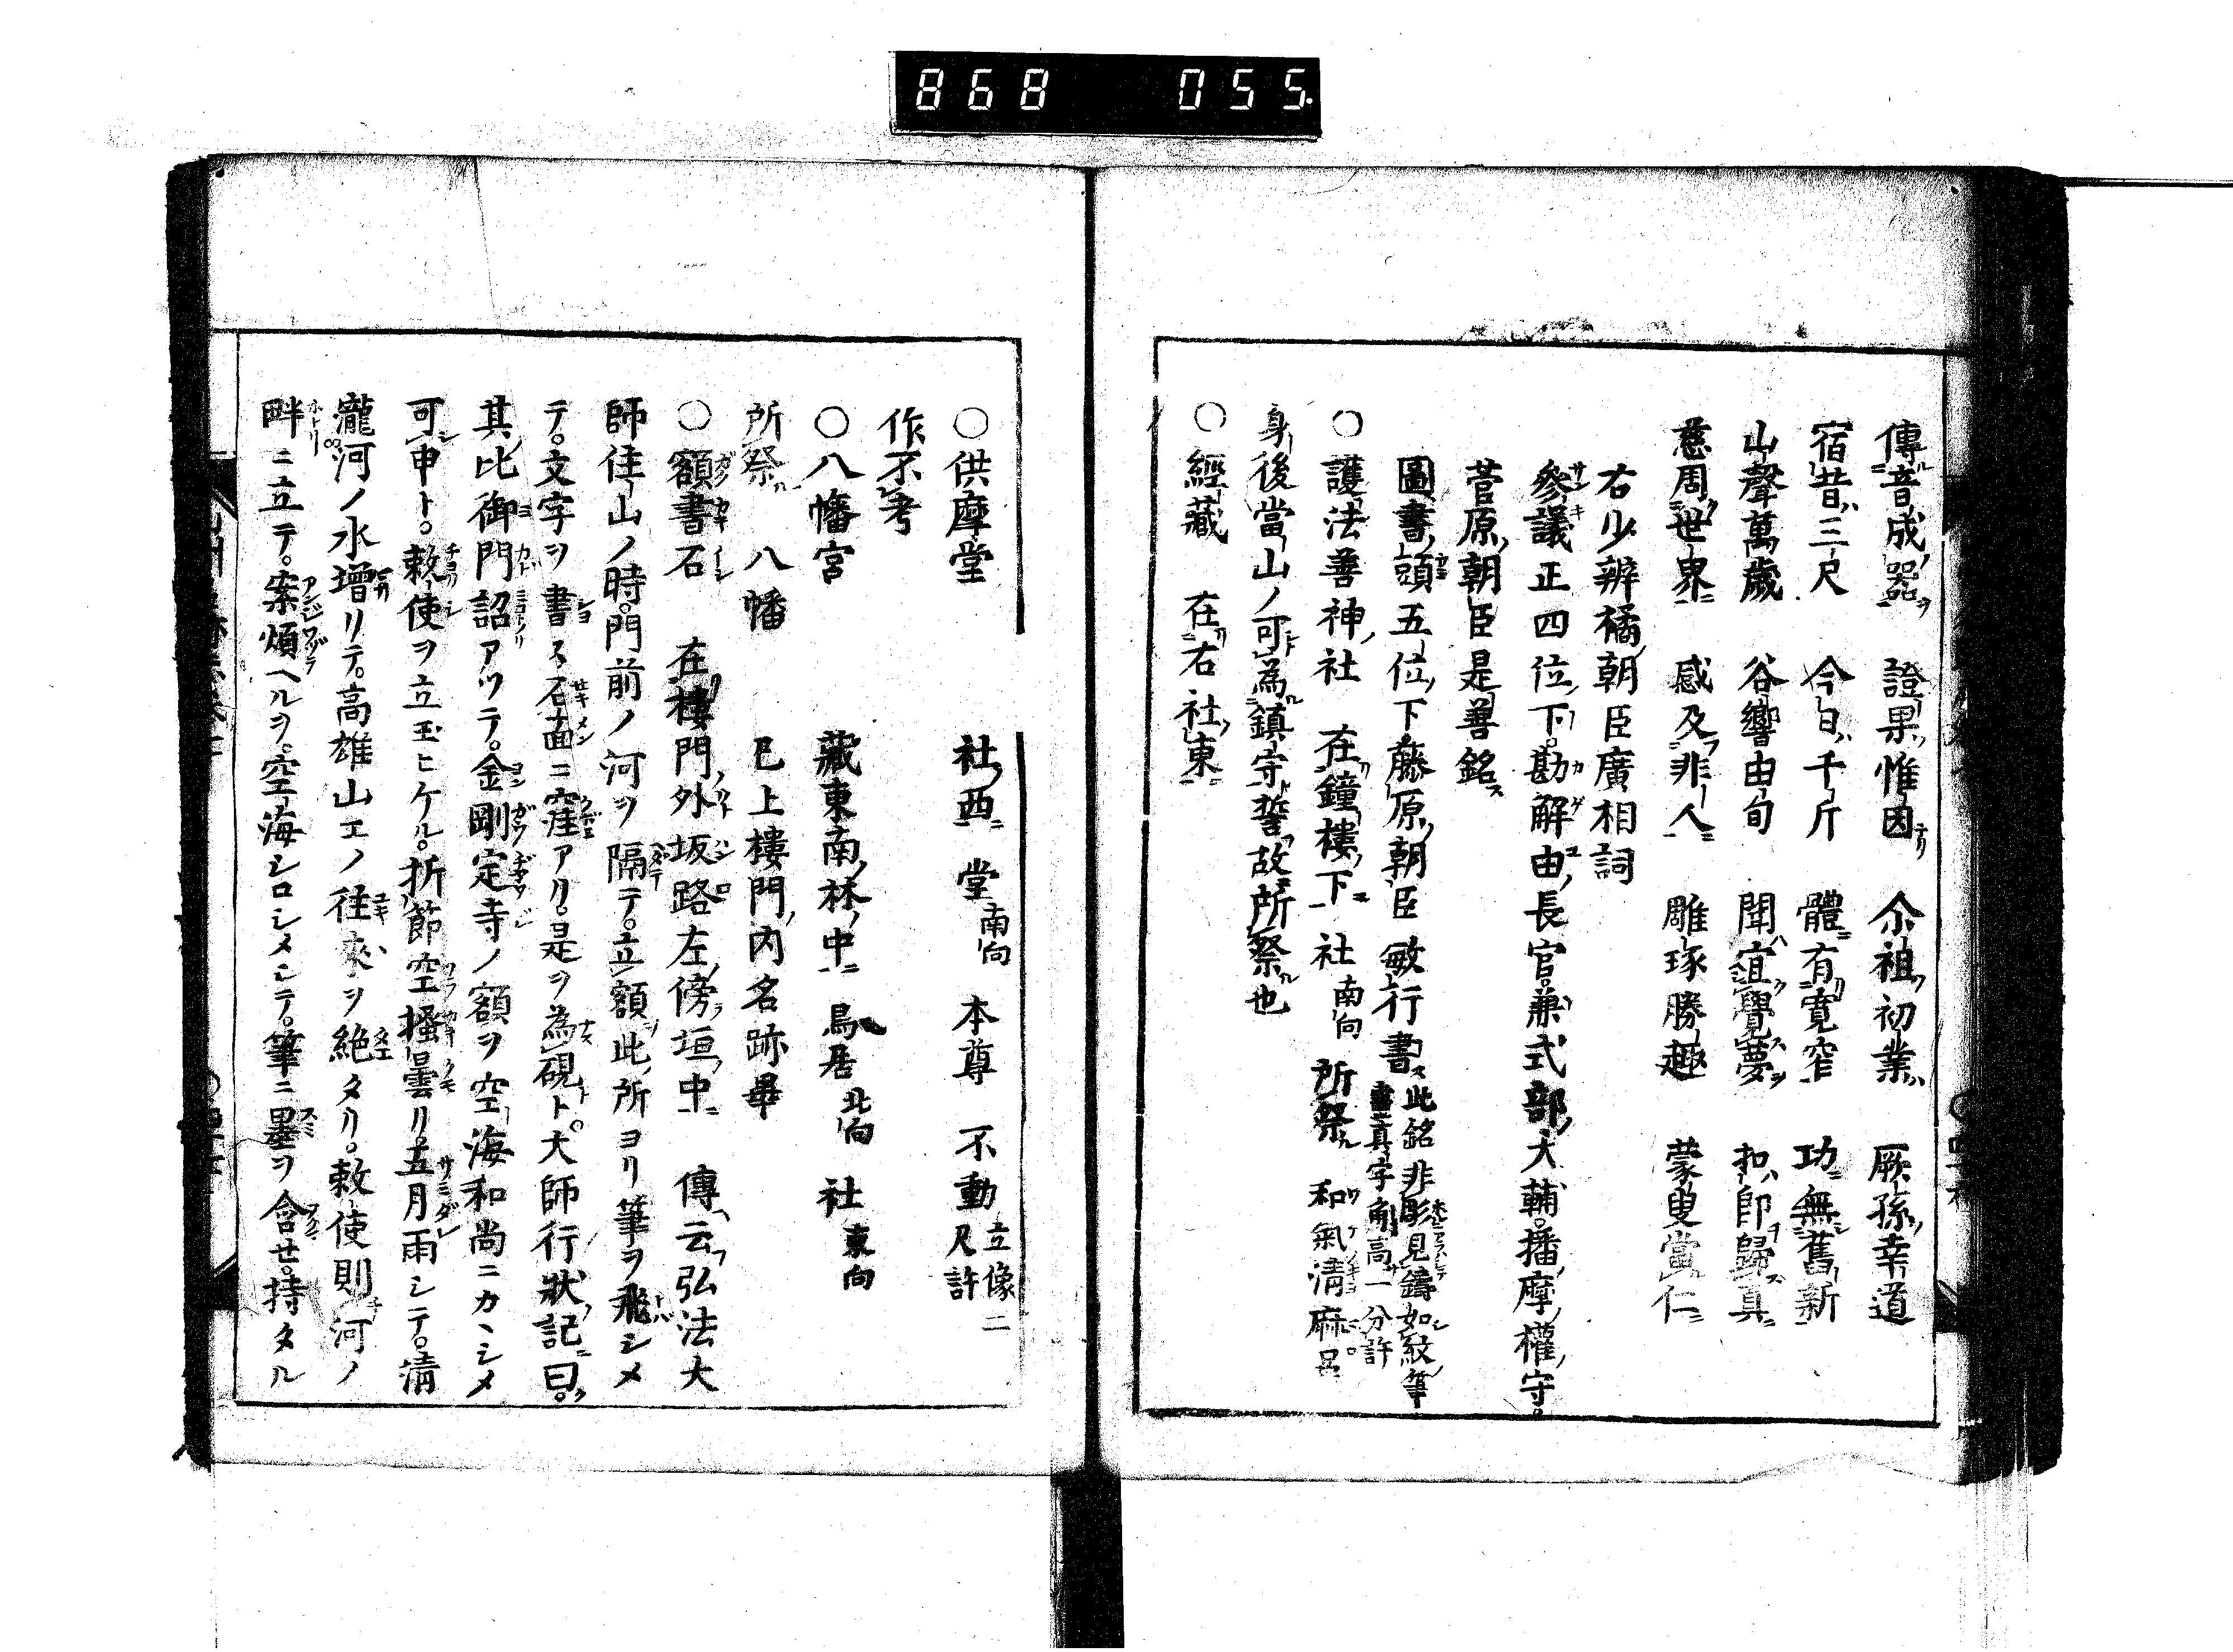 868 055.
傳音成器 證果惟因 尒祖初業 厥孫幸道
宿昔三尺 今日千斤 體有寛窄 功無舊新
山聲萬歲 谷響由旬 聞宜覺夢 扣即歸真
慈周世界 感及非人 雕琢勝趣 蒙叟當仁
右少辨橘朝臣廣相詞
參議正四位下。勘解由長官。兼式部大輔。播摩權守。
菅原朝臣是善銘
圖書頭五位下藤原朝臣敏行書 此銘非彫見鑄如紋筆 畫真字角高一分許
○護法善神社 在鐘樓下 社南向 所祭 和氣清麻呂
身後當山ノ可為鎮守誓故所祭也
○經藏 在右社東
○供摩堂 社西 堂南向 本尊 不動立像二尺許
作不考
○八幡宮 藏東南林中 鳥居北向 社東向
所祭 八幡 已上樓門内名跡畢
○額書石 在樓門外坂路左傍垣中 傳云弘法大
師住山ノ時。門前ノ河ヲ隔テ。立額此所ヨリ筆ヲ飛シメ
テ。文字ヲ書ス石面ニ窪アリ。是ヲ為硯ト。大師行狀記曰。
其比御門詔アツテ。金剛定寺ノ額ヲ空海和尚ニカヽシメ
可申ト。敕使ヲ立玉ヒケル。折節空搔曇リ。五月雨シテ。清
瀧河ノ水增リテ。高雄山エノ往來ヲ絶タリ。敕使則河ノ
畔ニ立テ。案煩ヘルヲ。空海シロシメシテ。筆ニ墨ヲ含セ。持タル